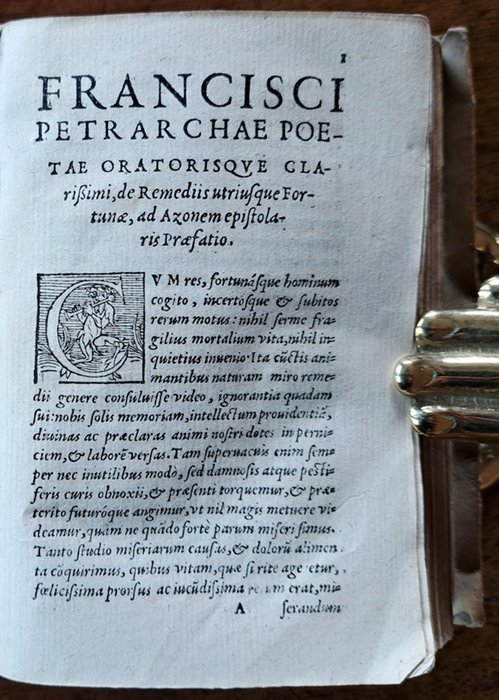 1
FRANCISCI
PETRARCHAE POE-
TAE ORATORISQVE CLA-
rißimi, de Remediis utriusque For-
tunæ, ad Azonem epistola-
ris Præfatio.
CVM res, fortunásque hominum
cogito, incertósque & subitos
rerum motus: nihil ferme fra-
gilius mortalium vita, nihil in-
quietius inuenio. Ita cūctis ani-
mantibus naturam miro reme-
dii genere consuluisse video, ignorantia quadam
sui: nobis solis memoriam, intellectum prouidentiā,
diuinas ac præclaras animi nostri dotes in perni-
ciem, & laborē versas. Tam superuacuis enim sem-
per nec inutilibus modò, sed damnosis atque pesti-
feris curis obnoxii, & præsenti torquemur, & præ-
terito futuróque angimur, vt nil magis metuere vi-
deamur, quàm ne quādo forte parum miseri simus.
Tanto studio miseriarum causas, & dolorū alimen-
ta cōquirimus, quibus vitam, quæ si rite ageretur,
fœlicissima prorsus ac iucūdissima erat, mi-
A serandum